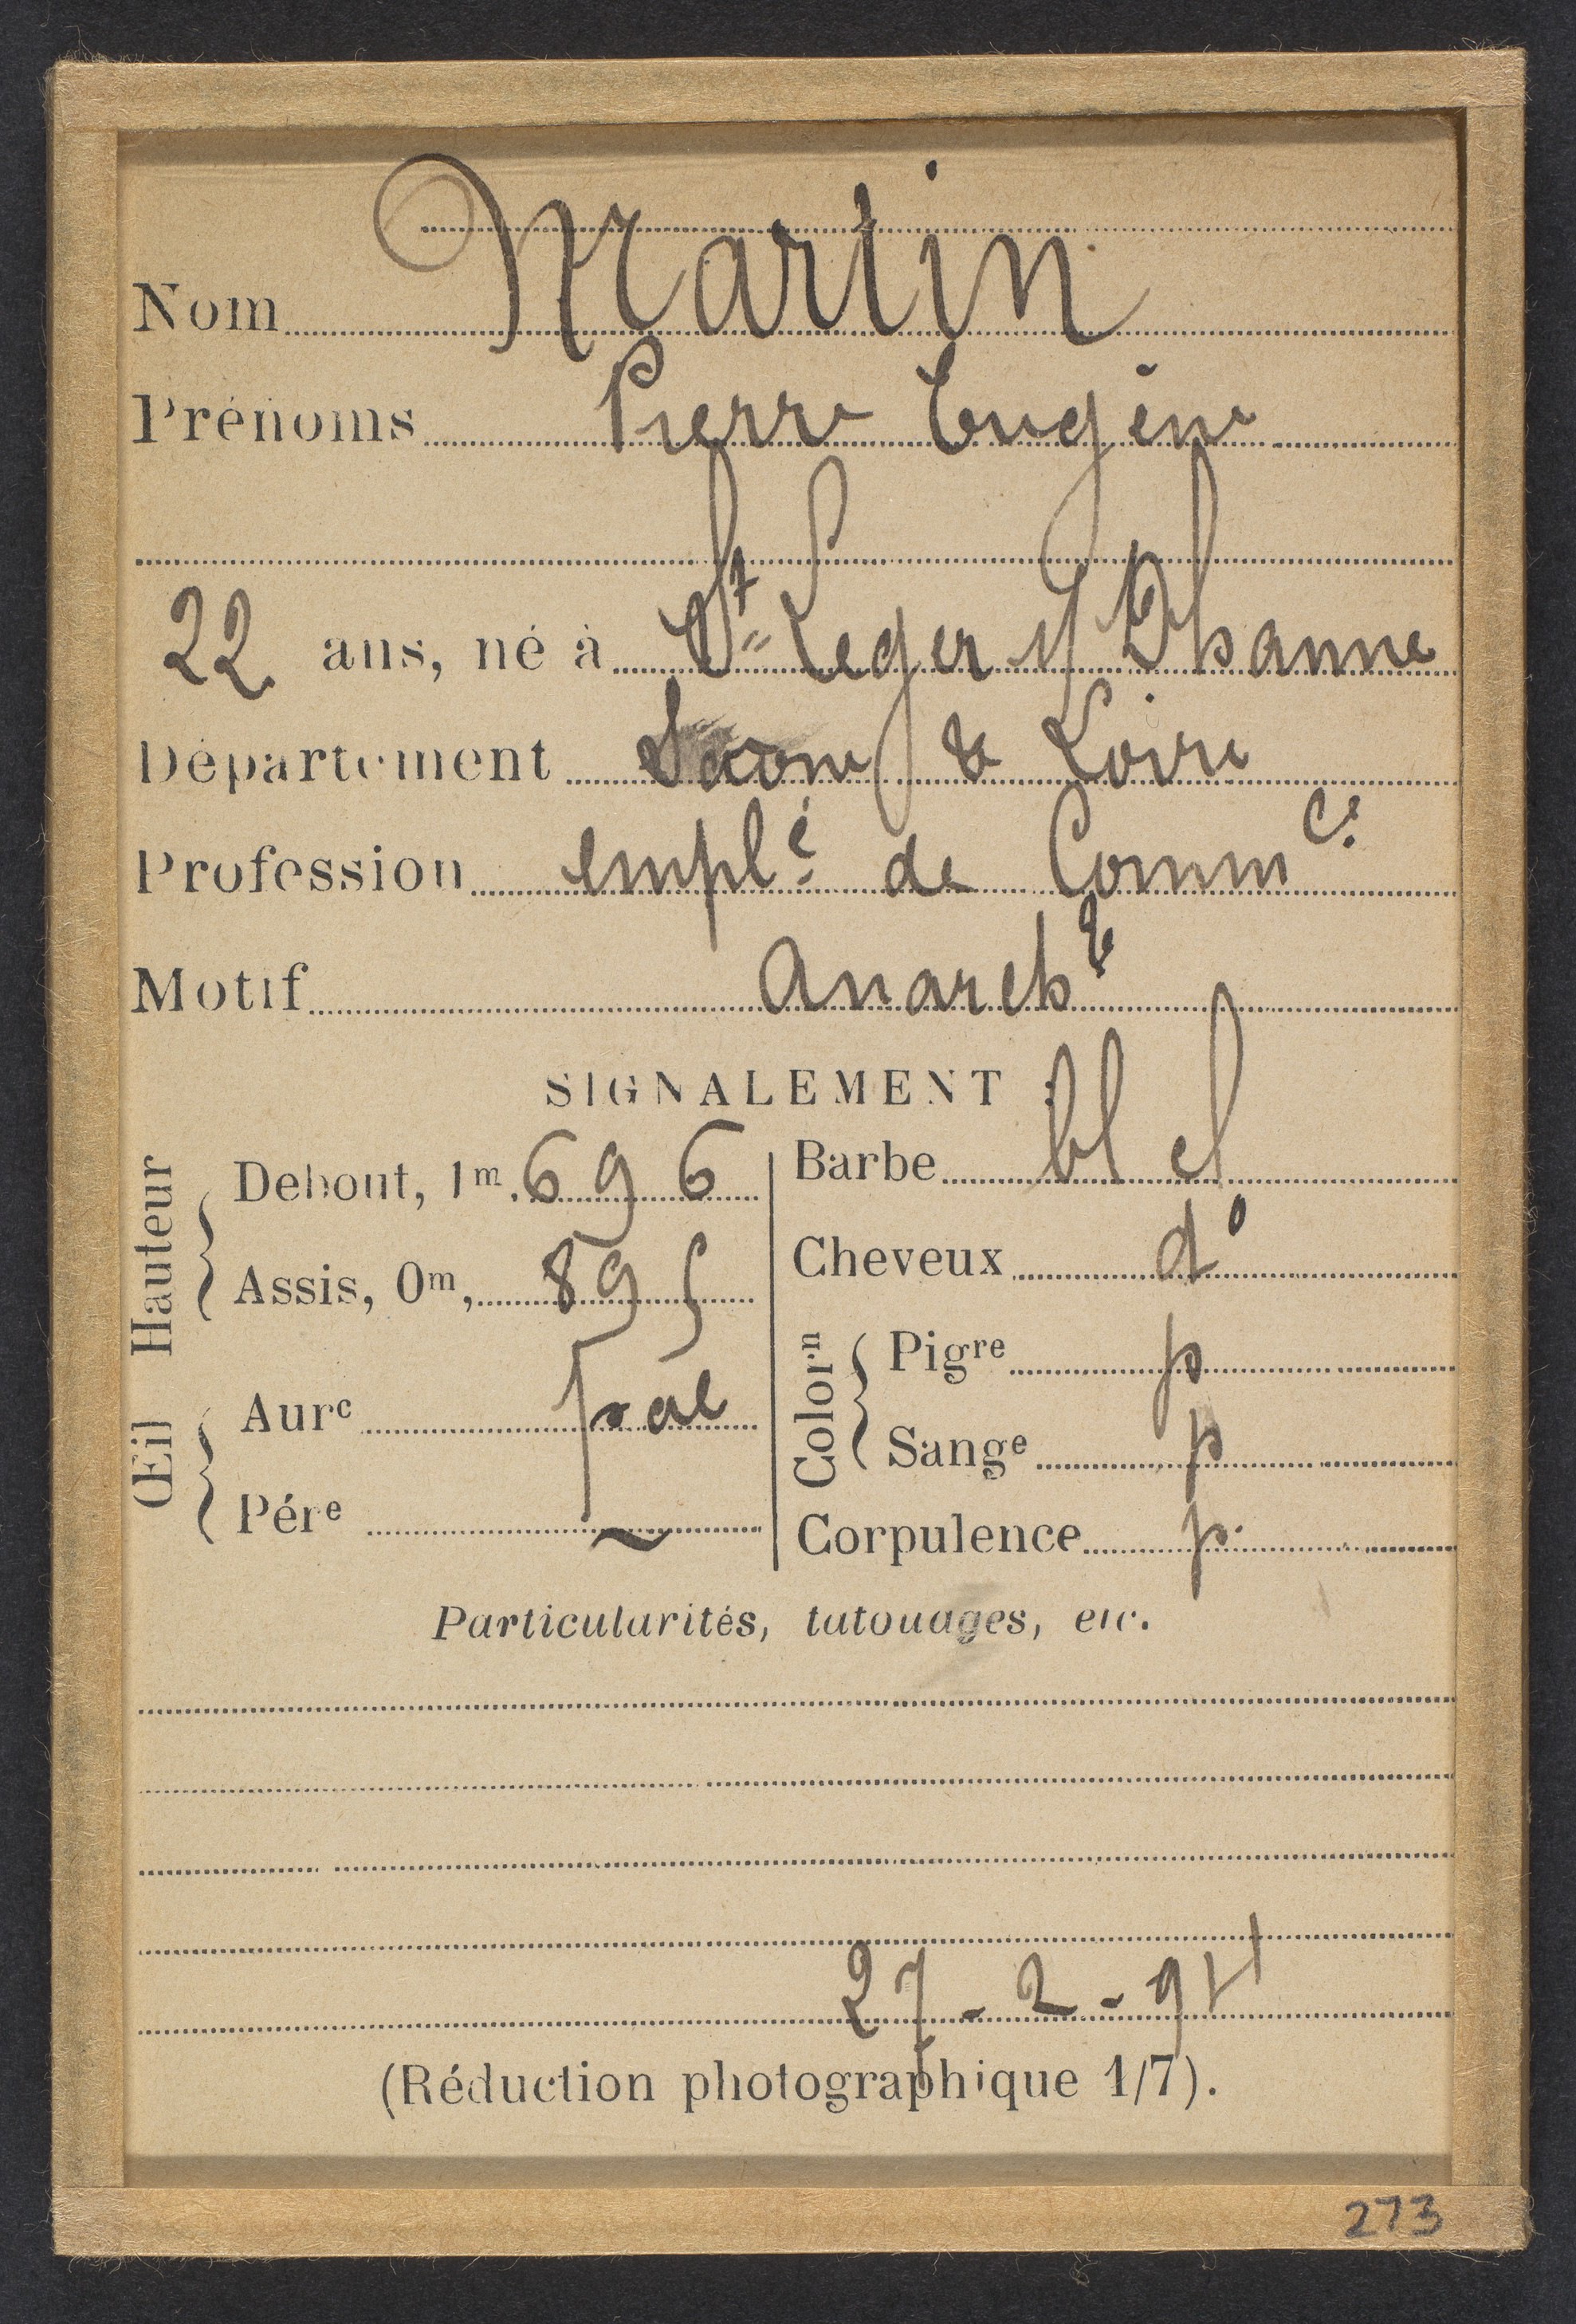 Nom Martin
Prénoms Pierre Eugène
22 ans, né à St Leger s/ Dhanne
Département Saone & Loire
Profession emplé de Commce.
Motif anarchte
SIGNALEMENT
Hauteur
Debout, 1m. 69 6
Assis, 0m, 89 5
Œil
Aure
Pére ~
Barbe bl cl
Cheveux d°
Colorn
Pigre p
Sange p
Corpulence p.
Particularités, tatouages, etc.
27-2-94
(Réduction photographique 1/7).
273